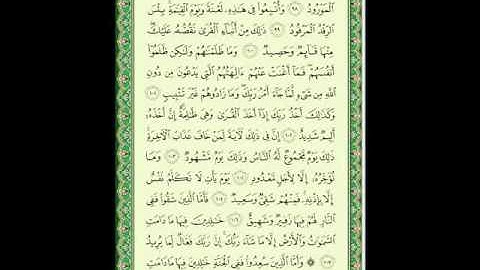 ٱلْمَوْرُودُ ٩٨ وَأُتْبِعُوا۟ فِى هَـٰذِهِۦ لَعْنَةً وَيَوْمَ ٱلْقِيَـٰمَةِ ۚ بِئْسَ
ٱلرِّفْدُ ٱلْمَرْفُودُ ٩٩ ذَٰلِكَ مِنْ أَنۢبَآءِ ٱلْقُرَىٰ نَقُصُّهُۥ عَلَيْكَ ۖ
مِنْهَا قَآئِمٌ وَحَصِيدٌ ١٠٠ وَمَا ظَلَمْنَـٰهُمْ وَلَـٰكِن ظَلَمُوٓا۟
أَنفُسَهُمْ ۖ فَمَآ أَغْنَتْ عَنْهُمْ ءَالِهَتُهُمُ ٱلَّتِى يَدْعُونَ مِن دُونِ
ٱللَّهِ مِن شَىْءٍ لَّمَّا جَآءَ أَمْرُ رَبِّكَ ۖ وَمَا زَادُوهُمْ غَيْرَ تَتْبِيبٍ ١٠١
وَكَذَٰلِكَ أَخْذُ رَبِّكَ إِذَآ أَخَذَ ٱلْقُرَىٰ وَهِىَ ظَـٰلِمَةٌ ۚ إِنَّ أَخْذَهُۥٓ
أَلِيمٌ شَدِيدٌ ١٠٢ إِنَّ فِى ذَٰلِكَ لَـَٔايَةً لِّمَنْ خَافَ عَذَابَ ٱلْـَٔاخِرَةِ ۚ
ذَٰلِكَ يَوْمٌ مَّجْمُوعٌ لَّهُ ٱلنَّاسُ وَذَٰلِكَ يَوْمٌ مَّشْهُودٌ ١٠٣ وَمَا
نُؤَخِّرُهُۥٓ إِلَّا لِأَجَلٍ مَّعْدُودٍ ١٠٤ يَوْمَ يَأْتِ لَا تَكَلَّمُ نَفْسٌ
إِلَّا بِإِذْنِهِۦ ۚ فَمِنْهُمْ شَقِىٌّ وَسَعِيدٌ ١٠٥ فَأَمَّا ٱلَّذِينَ شَقُوا۟ فَفِى
ٱلنَّارِ لَهُمْ فِيهَا زَفِيرٌ وَشَهِيقٌ ١٠٦ خَـٰلِدِينَ فِيهَا مَا دَامَتِ
ٱلسَّمَـٰوَٰتُ وَٱلْأَرْضُ إِلَّا مَا شَآءَ رَبُّكَ ۚ إِنَّ رَبَّكَ فَعَّالٌ لِّمَا يُرِيدُ
١٠٧ ۞ وَأَمَّا ٱلَّذِينَ سُعِدُوا۟ فَفِى ٱلْجَنَّةِ خَـٰلِدِينَ فِيهَا مَا دَامَتِ